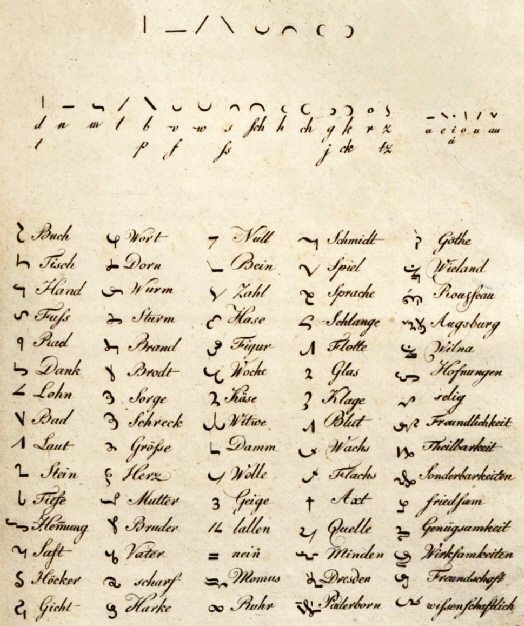 d n m l b v w s sch h ch g k r z a e i o u au
t p f ss j ck tz ü
Buch Wort Null Schmidt Göthe
Tisch Dorn Bein Spiel Wieland
Hand Wurm Zahl Sprache Rousseau
Fuss Sturm Hase Schlange Augsburg
Rad Brand Figur Flotte Wilna
Dank Brodt Woche Glas Hofnungen
Lohn Sorge Käse Klage selig
Bad Schreck Witwe Blut Freundlichkeit
Laut Größe Damm Wachs Theilbarkeit
Stein Herz Wolle Flachs Sonderbarkeiten
Tiefe Mutter Geige Axt friedsam
Hem̄ung Bruder lallen Quelle Genügsamkeit
Saft Vater nein̄ Minden Wirksamkeiten
Höcker scharf Momus Dresden Freundschaft
Gicht Harke Ruhr Paderborn wissenschaftlich